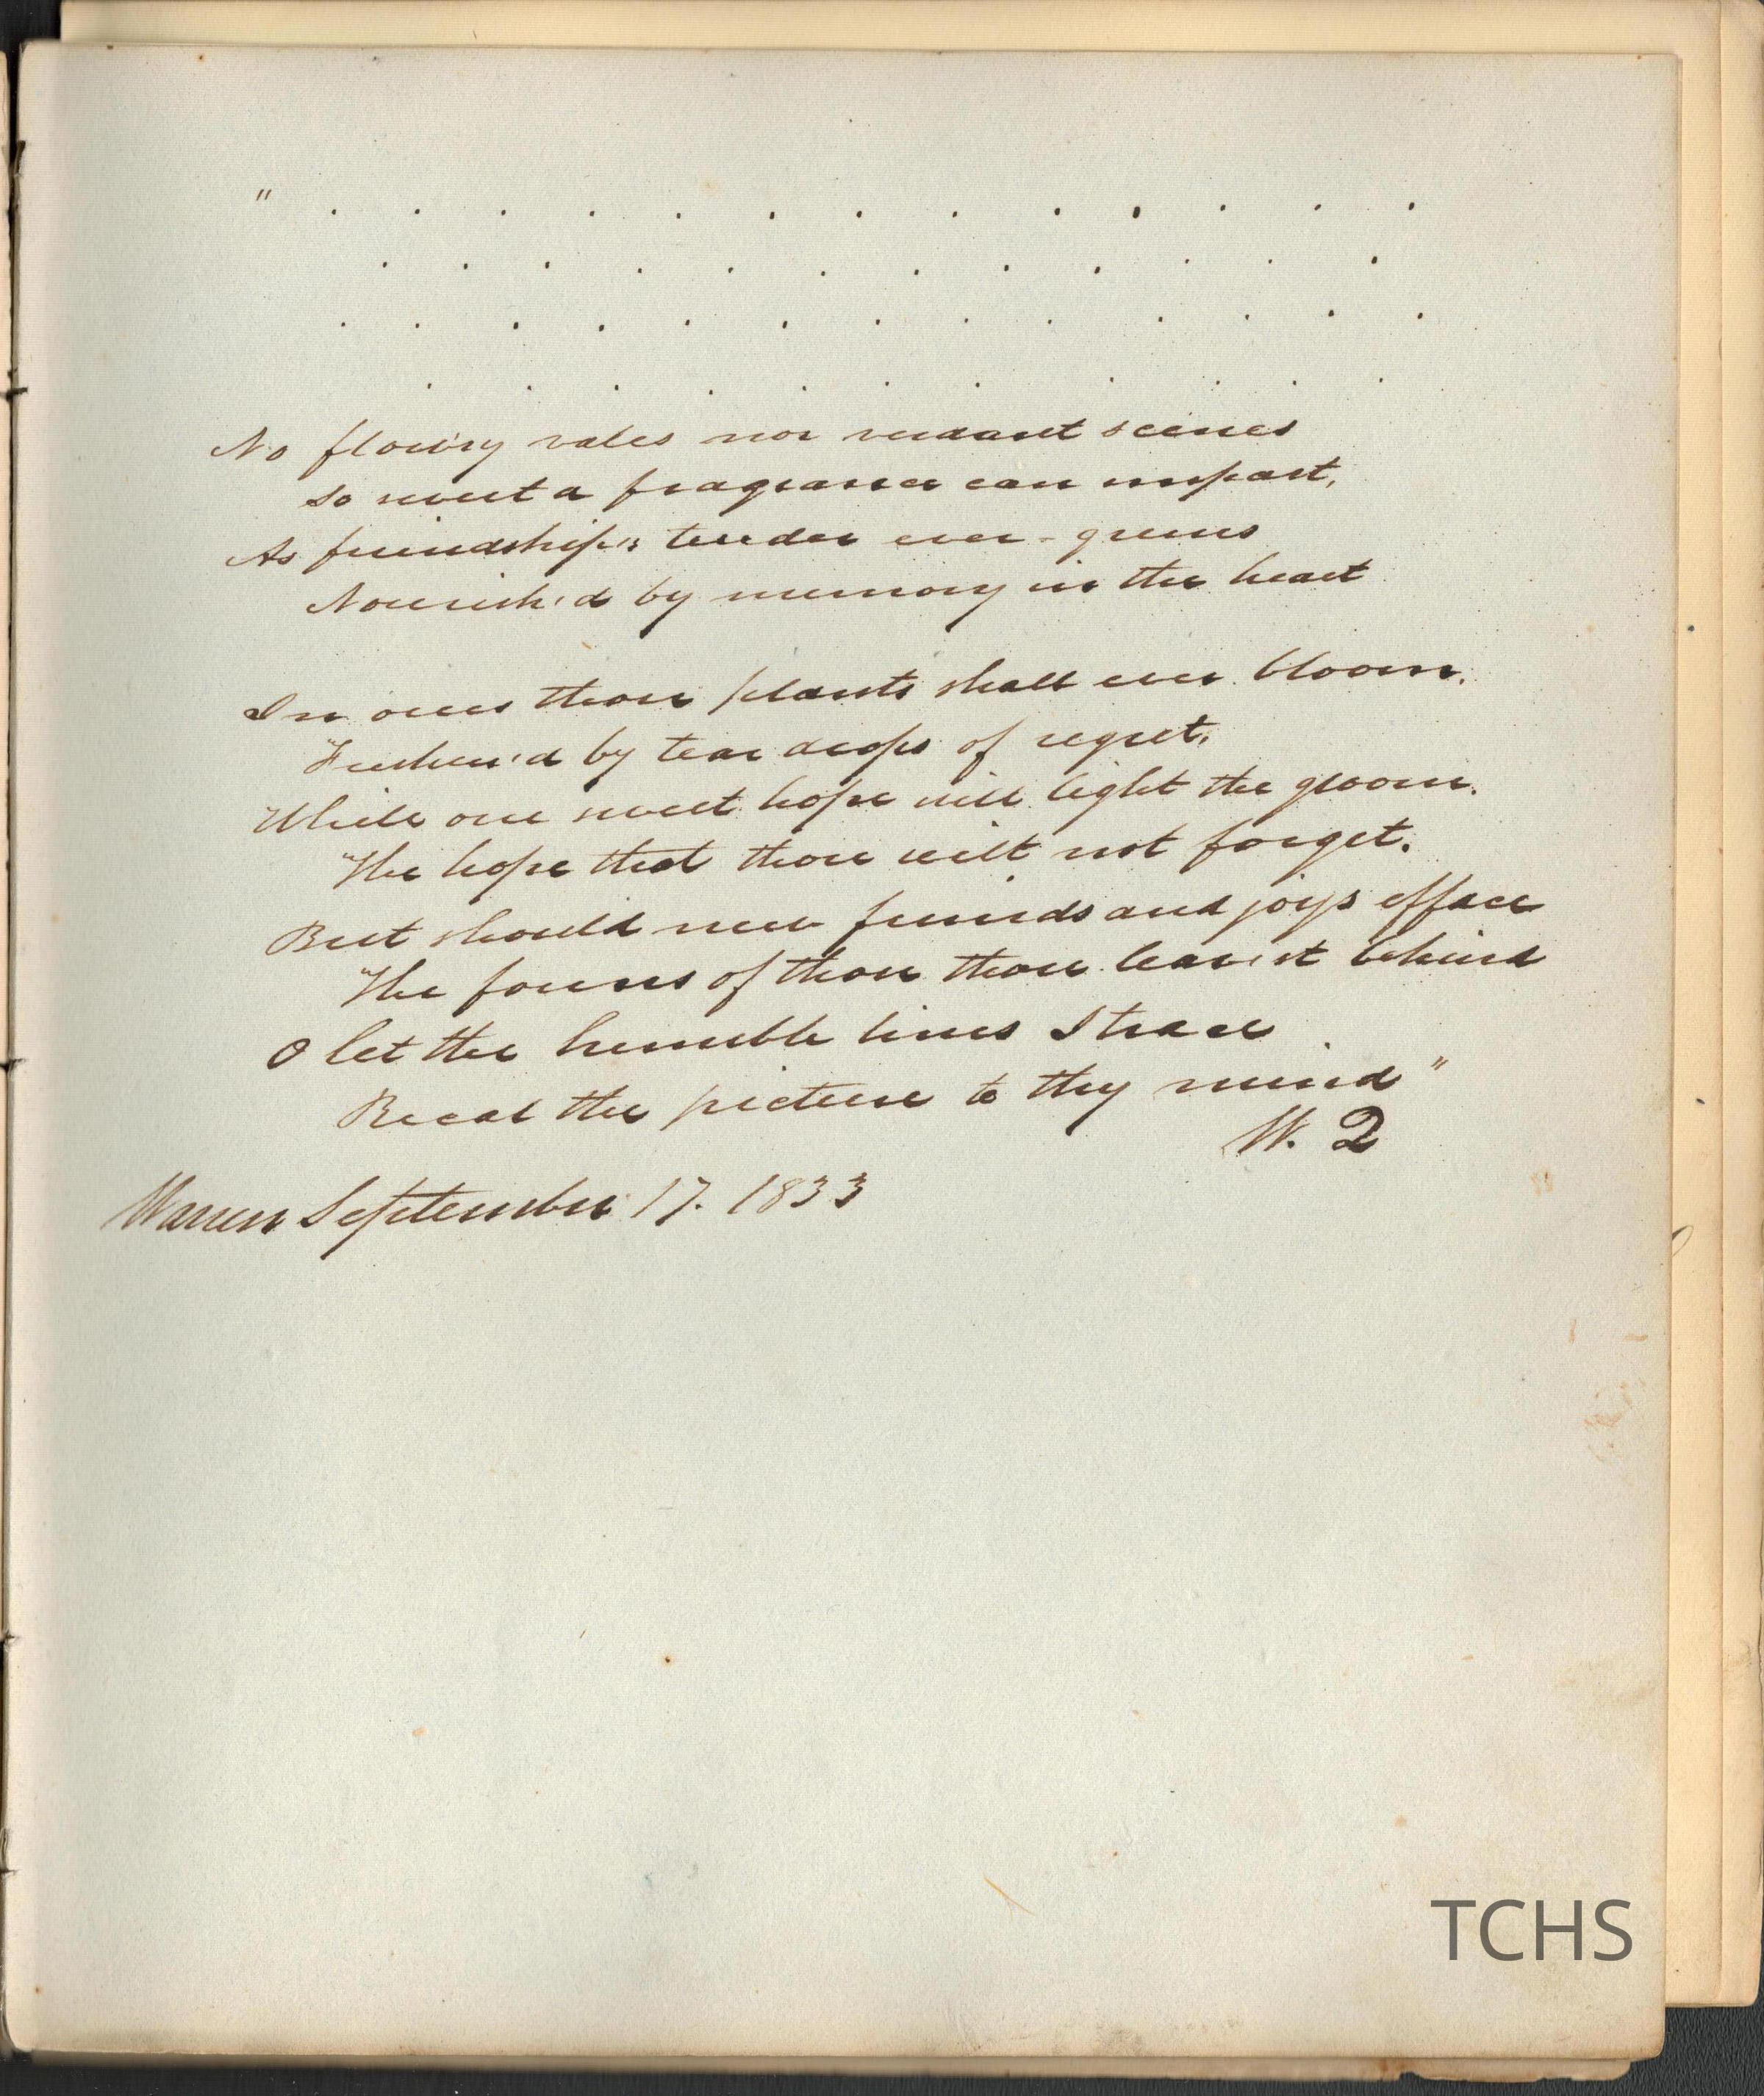 " . . . . . . . . . . . . .
. . . . . . . . . . . .
. . . . . . . . . . . . .
. . . . . . . . . . . .
No flow'ry vales nor verdant scenes
So sweet a fragrance can impart,
As friendship's tender ever-greens
Nourish'd by memory in the heart
In ours those plants shall ever bloom.
Freshen'd by tear drops of regret.
While one sweet hope will light the gloom.
The hope that thou wilt not forget.
But should new friends and joys efface
The forms of those thou leav'st behind
O let the humble lines I trace
Recal the picture to thy mind"
W. Q
Warren September 17. 1833
TCHS